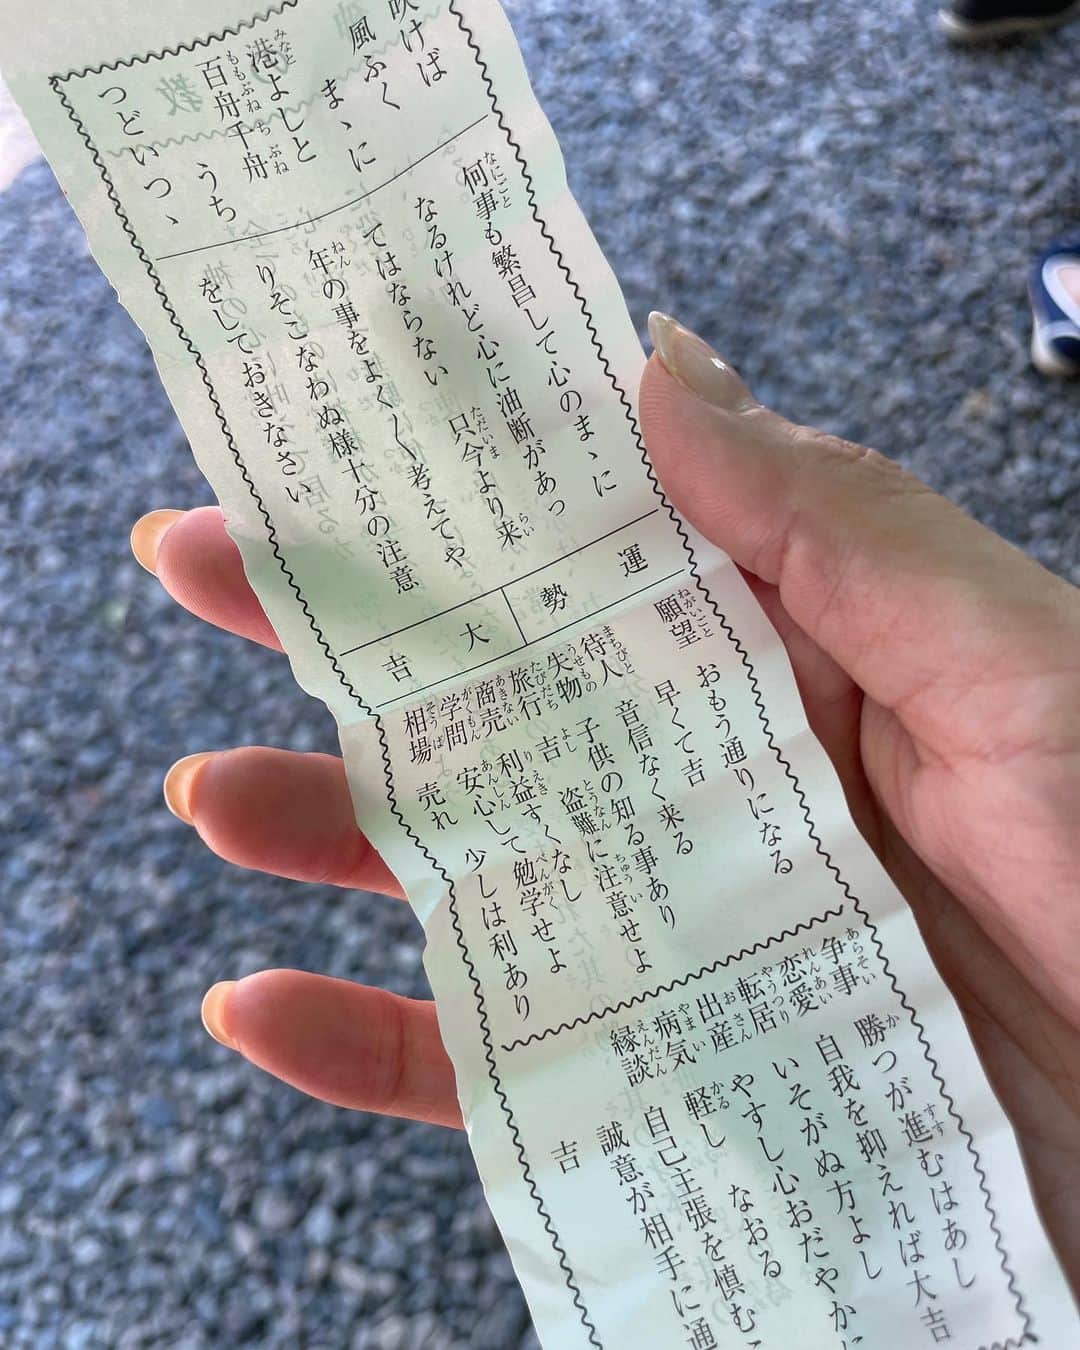 吹けば
風ふく
まゝに
港よしと
百舟千舟
うち
つどいつゝ
何事も繁昌して心のまゝに
なるけれど心に油断があつ
てはならない 只今より来
年の事をよく〱考えてや
りそこなわぬ様十分の注意
をしておきなさい
運勢
大吉
願望 おもう通りになる
早くて吉
待人 音信なく来る
失物 子供の知る事あり
旅行 吉 盗難に注意せよ
商売 利益すくなし
学問 安心して勉学せよ
相場 売れ 少しは利あり
争事 勝つが進むはあし
恋愛 自我を抑えれば大吉
転居 いそがぬ方よし
出産 やすし心おだやかに
病気 軽し なおる
縁談 自己主張を慎むこ
誠意が相手に通
吉